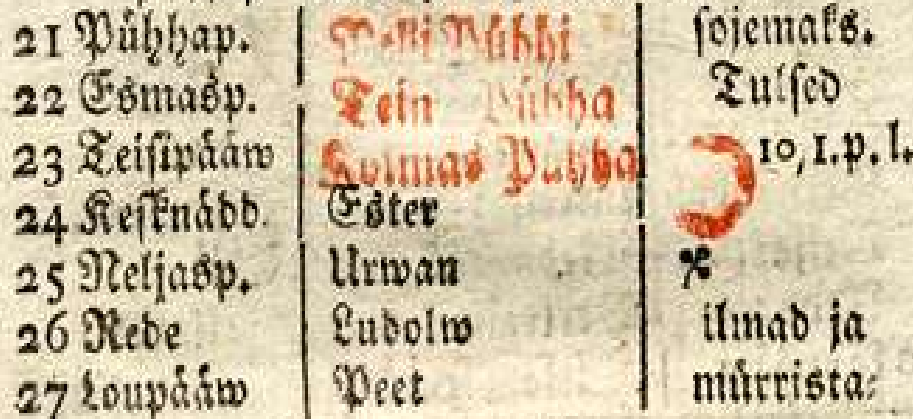 21 Pühhap. Nelli Pühhi sojemaks.
22 Esmasp. Tein Pühha Tulsed
23 Teisipääw Kolmas Pühha 10, 1. p. l.
24 Keſknädd. Eſter
25 Neljasp. Urwan
26 Rede Ludolw ilmad ja
27 Loupääw Peet mürrista⸗